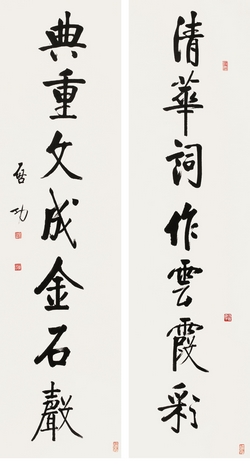 清華詞作雲霞彩
典重文成金石聲
啓功